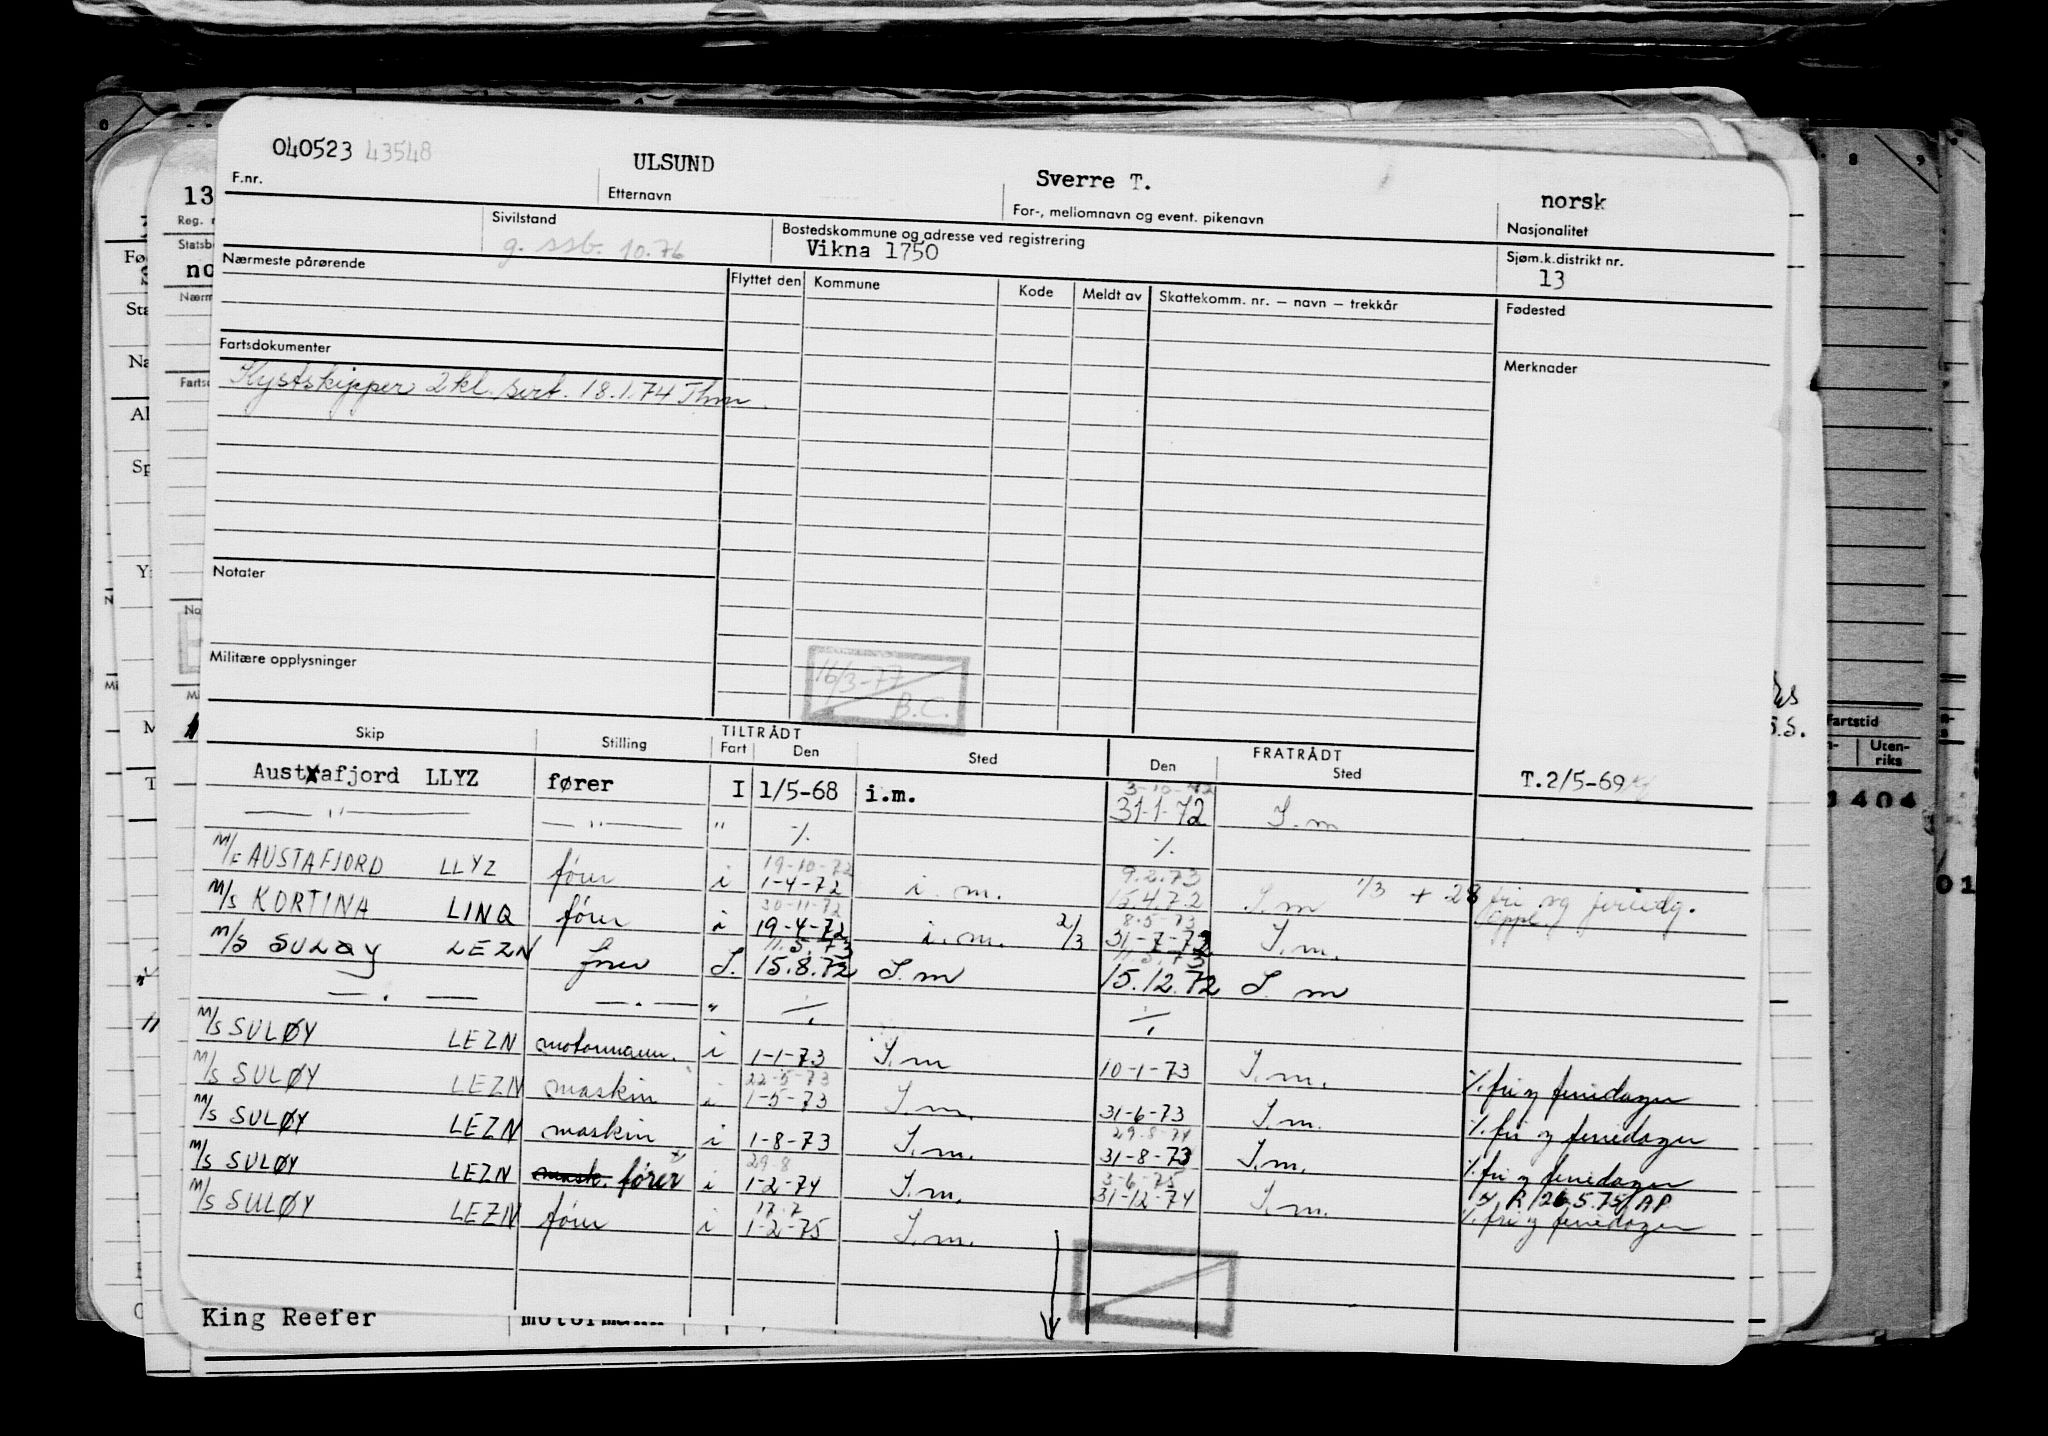 040523 43548
ULSUND
Sverre T.
norsk
F.nr.
Etternavn
For-, mellomnavn og event. pikenavn
Nasjonalitet
Sivilstand
g. ssb. 10.76
Bostedskommune og adresse ved registrering
Vikna 1750
Sjøm.k.distrikt nr.
13
Nærmeste pårørende
Flyttet den
Kommune
Kode
Meldt av
Skattekomm. nr. – navn – trekkår
Fødested
Fartsdokumenter
Merknader
Kystskipper 2 kl. sert. 18.1.74 Thm
Notater
Militære opplysninger
16/3-77
B.C.
Skip Stilling TILTRÅDT Fart Den Sted FRATRÅDT Den Sted
3-10-72
Austafjord LLYZ fører I 1/5-68 i.m. 31-1-72 I.m T.2/5-69
— " — — " — " %. %.
19-10-72 9.2.73
M/F AUSTAFJORD LLYZ fører i 1-4-72 i.m. 15.4.72 I.m 1/3 + 28 fri og feriedg.
30-11-72 8-5-73 oppl.
M/S KORTINA LINQ fører i 19-4-72 i.m. 2/3 31-7-72 I.m.
11.5.73 11.5.73
M/S SULØY LEZN fører I. 15.8.72 I.m 15.12.72 I.m
— . — — . — " %. %.
M/S SULØY LEZN motormann. i 1-1-73 I.m 10-1-73 I.m. %. fri og feriedager
22-5-73
M/S SULØY LEZN maskin i 1-5-73 I.m. 31-6-73 I.m. %. fri og feriedager
29-8-74
M/S SULØY LEZN maskin i 1-8-73 I.m. 31-8-73 I.m. %. fri og feriedager
29-8 3-6-75
M/S SULØY LEZN mask. fører i 1-2-74 I.m. 31-12-74 I.m. R/26.5.75/AP
17.7 %. fri og feriedager
M/S SULØY LEZN fører i 1-2-75 I.m.
King Reefer motormann
Fartstid
Uten-
riks
1404
01